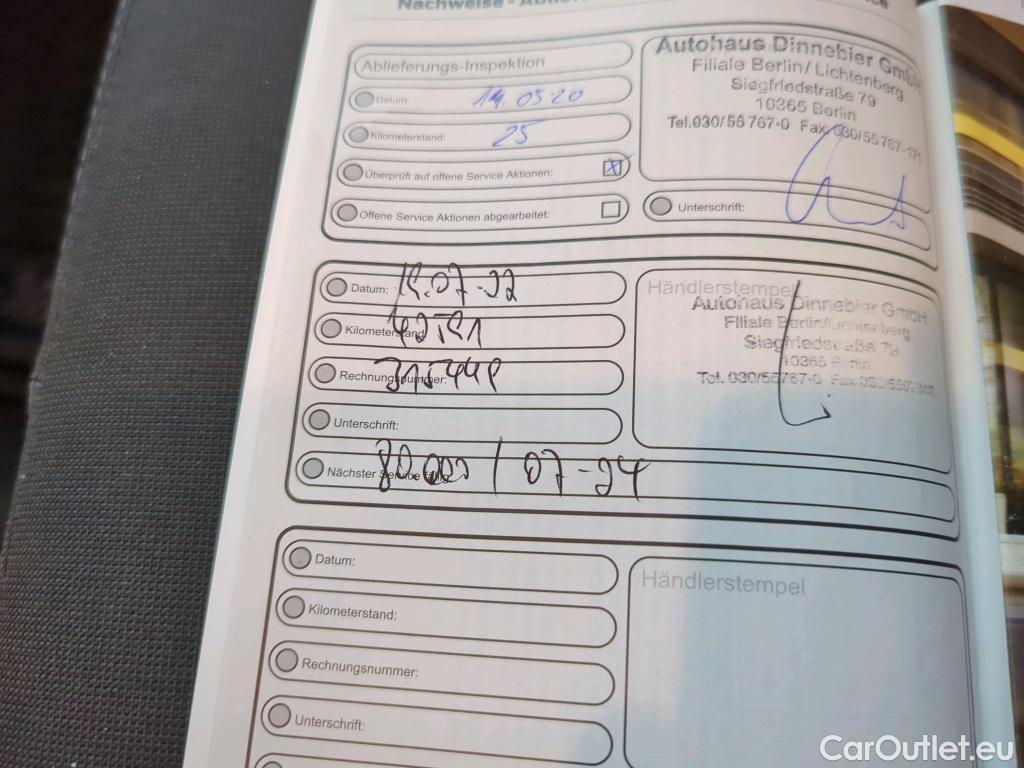 Nachweise -
Ablieferungs-Inspektion
Datum: 14.05.20
Kilometerstand: 25
Überprüft auf offene Service Aktionen: X
Offene Service Aktionen abgearbeitet:
Autohaus Dinnebier GmbH
Filiale Berlin/Lichtenberg
Siegfriedstraße 79
10365 Berlin
Tel.030/55 767-0 Fax 030/55767-171
Unterschrift:
Datum:
Kilometerstand
Rechnungsnummer:
Unterschrift:
Nächster Service 80.000 / 07-24
Händlerstempel
Autohaus Dinnebier GmbH
Filiale Berlin/Lichtenberg
Siegfriedstraße 79
10365 Berlin
Tel. 030/55767-0 Fax
Datum:
Kilometerstand:
Rechnungsnummer:
Unterschrift:
Händlerstempel
CarOutlet.eu